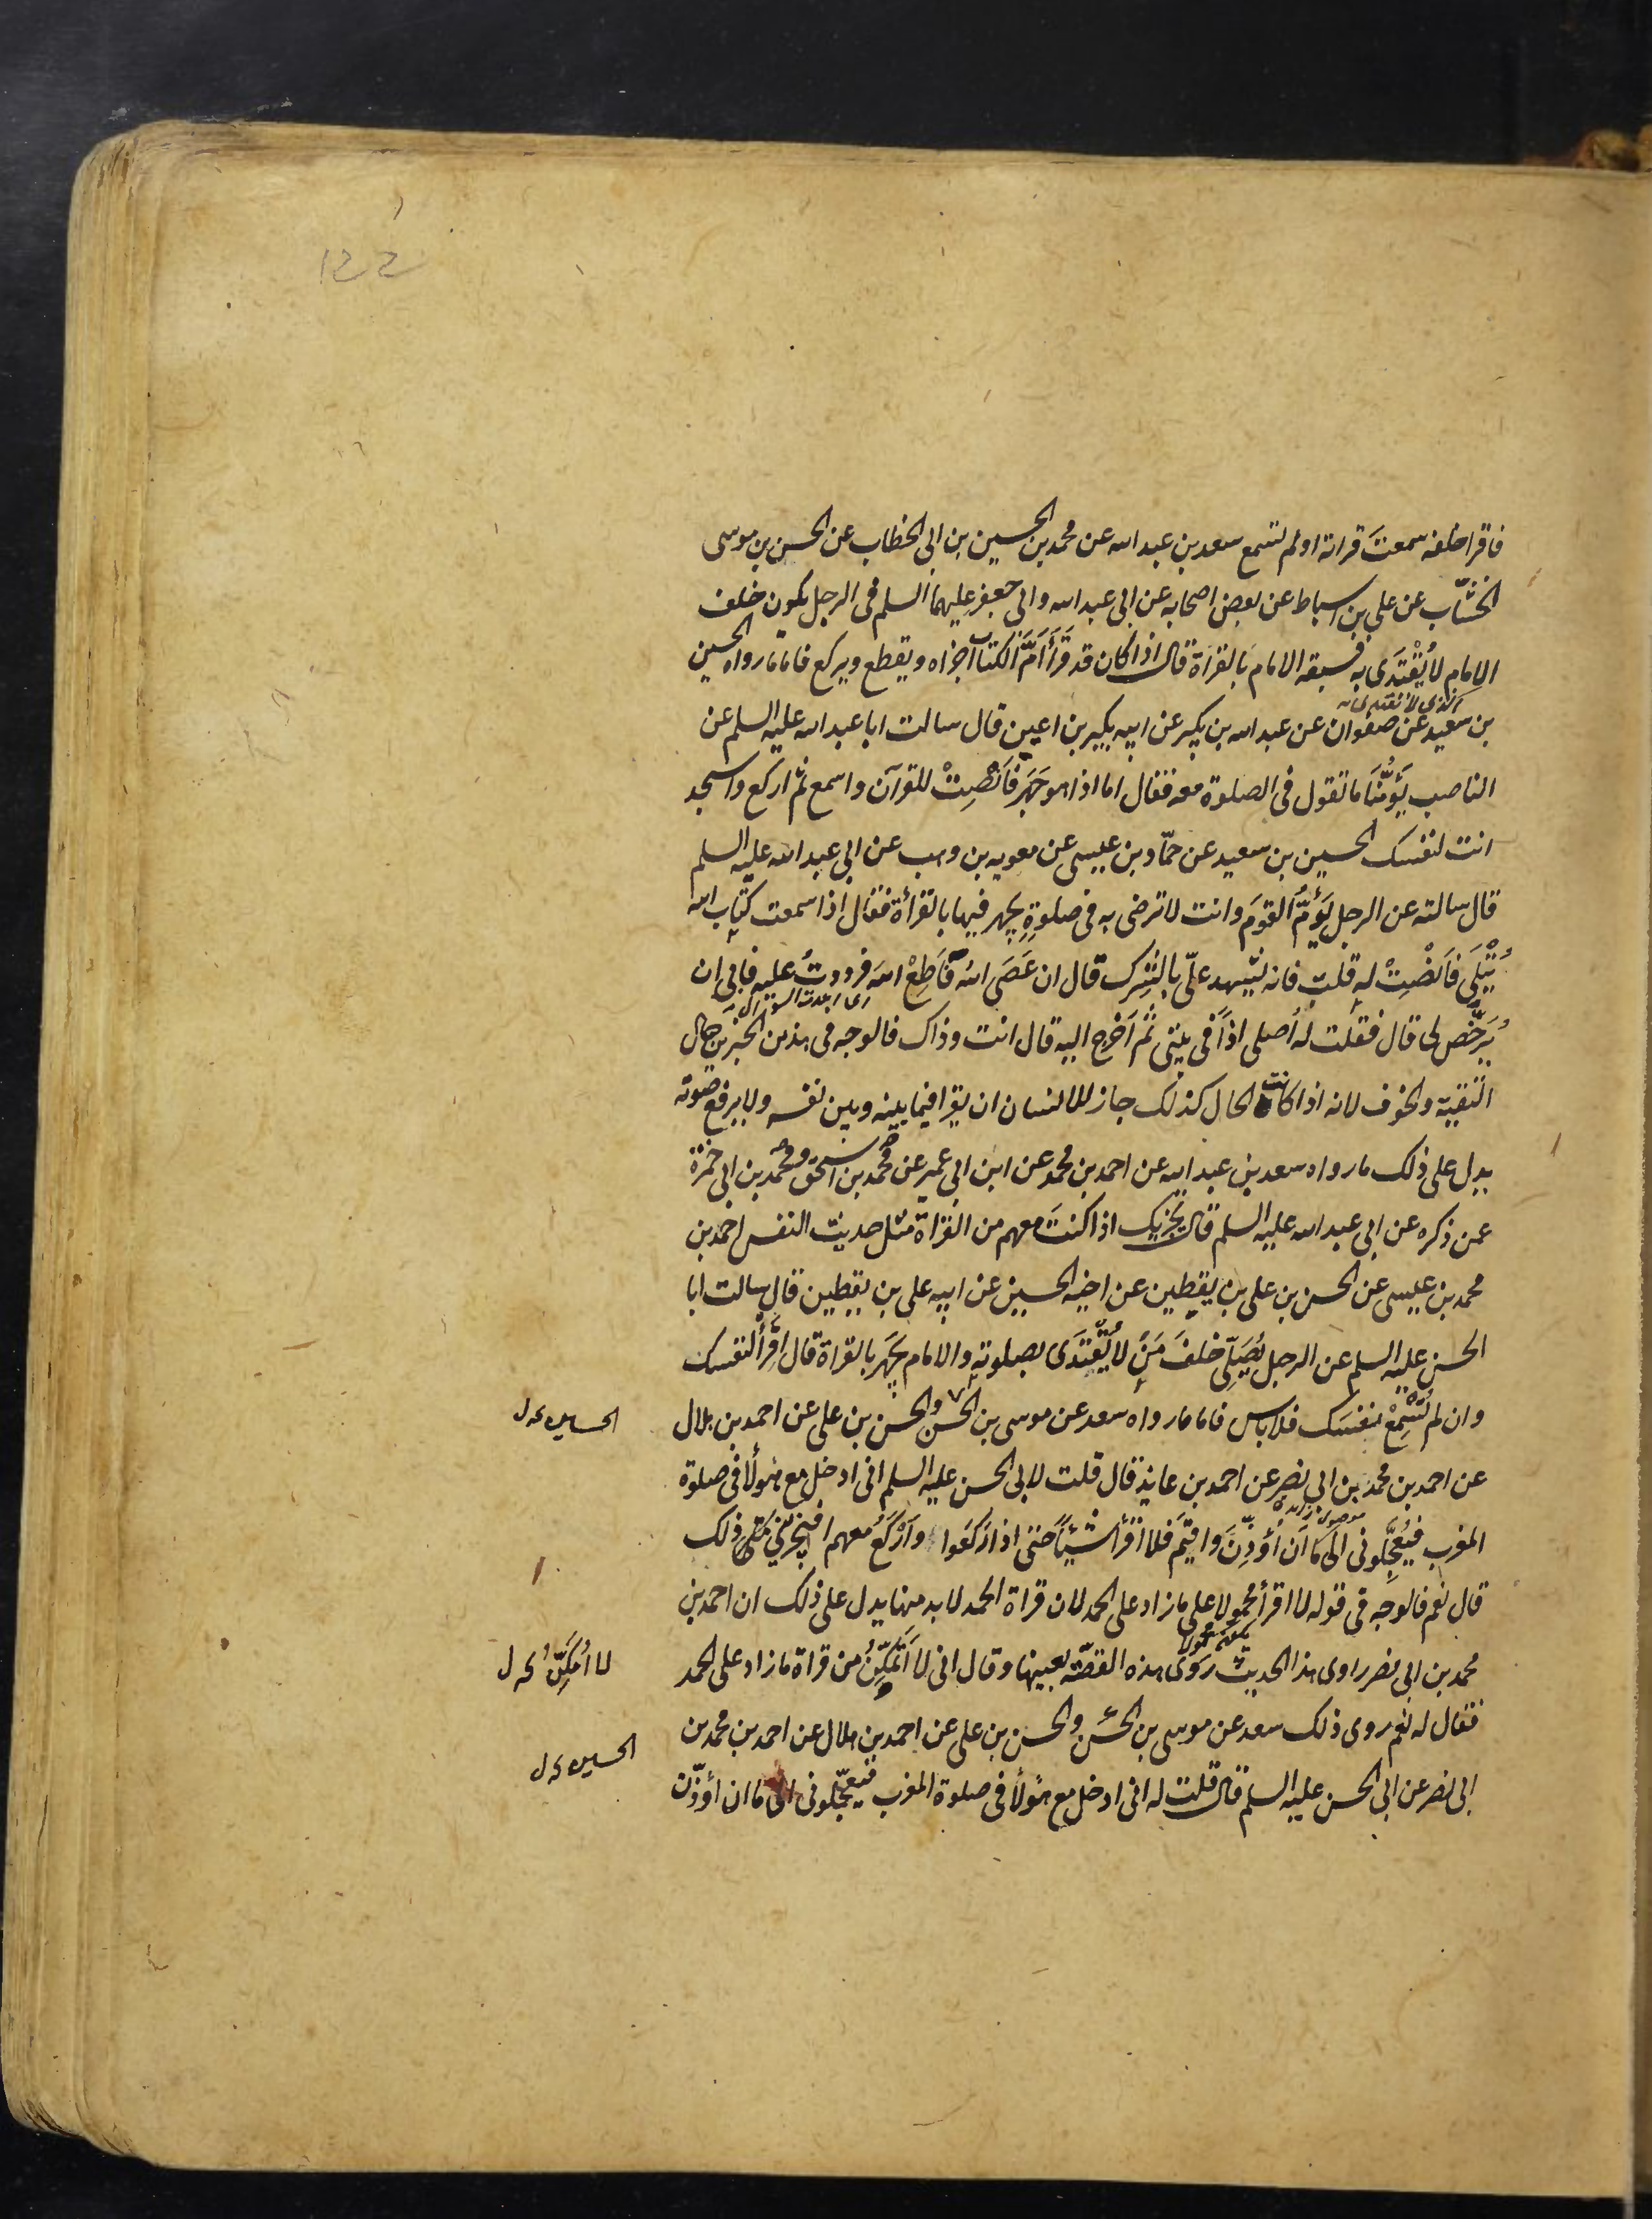 122
فاقرا خلفه سمعتَ قراته او لم تسمع سعد بن عبد الله عن محمد بن الحسين بن ابى الخطاب عن الحسن بن موسى
الخشّاب عن على بن اسباط عن بعض اصحابه عن ابى عبد الله وابى جعفر عليهما السلم فى الرجل يكون خلف
الامام لا يُقْتَدَى به فسبقه الامام بالقراة قال اذا كان قد قَرَأَ اُمَّ الكتاب اجزاه ويقطع ويركع فاما ما رواه الحسين
بن سعيد عن صفوان عن عبد الله بن بكير عن ابيه بكير بن اعين قال سالت ابا عبد الله عليه السلم عن
الناصب يَؤُمُّنَا ما تقول فى الصلوة معه فقال اما اذا هو جَهَرَ فَاَنْصِتْ للقرآن واسمع ثم اركع واسجد
انت لنفسك الحسين بن سعيد عن حمّاد بن عيسى عن معويه بن وهب عن ابى عبد الله عليه السلم
قال سالته عن الرجل يَؤُمُّ القومَ وانت لا ترضى به فى صلوةٍ يجهر فيها بالقرأة فقال اذا سمعت كتاب الله
يُتْلَى فَاَنْصِتْ له قلت فانه يشهد علىّ بالشِرك قال ان عَصَى اللهَ فَاَطِعْ اللهَ فرددتُ عليه فابى ان
يُرَخِّص لى قال فقلت له اُصلى اذًا فى بيتى ثم اَخرج اليه قال انت وذاك فالوجه فى هذين الخبرين حال
التقية والخوف لانه اذا كانت الحال كذلك جاز للانسان ان يقرا فيما بينه وبين نفسه ولا يرفع صوته
يدل على ذلك ما رواه سعد بن عبد الله عن احمد بن محمد عن ابن ابى عمير عن محمد بن اسحق ومحمد بن ابى حمزة
عمن ذكره عن ابى عبد الله عليه السلم قال يجزيك اذا كنتَ معهم من القراة مثل حديث النفس احمد بن
محمد بن عيسى عن الحسن بن على بن يقطين عن اخيه الحسين عن ابيه على بن يقطين قال سالت ابا
الحسن عليه السلم عن الرجل يُصَلِّى خلفَ مَنْ لا يُقْتَدَى بصلوته والامام يجهر بالقراة قال اقرأ لنفسك
وان لم تُسْمِعْ نفسك فلا باس فاما ما رواه سعد عن موسى بن الحسن والحسن بن على عن احمد بن هلال
عن احمد بن محمد بن ابى نصر عن احمد بن عايذ قال قلت لابى الحسن عليه السلم انى ادخل مع هولأ فى صلوة
المغرب فيُعَجِّلونى الى ما ان اُؤذِّنَ واقيمَ فلا اقرأ شيئًا حتى اذا ركعوا واَركَعُ معهم افيجزينى ذلك
قال نعم فالوجه فى قوله لا اقرأ محمولا على ما زاد على الحمد لان قراة الحمد لابد منها يدل على ذلك ان احمد بن
محمد بن ابى نصر راوى هذا الحديث روى هذه القصّة بعينها وقال انى لا اَتَمَكَّنُ من قراة ما زاد على الحمد
فقال له نعم روى ذلك سعد عن موسى بن الحسن والحسن بن على عن احمد بن هلال عن احمد بن محمد بن
ابى نصر عن ابى الحسن عليه السلم قال قلت له انى ادخل مع هولأ فى صلوة المغرب فيعجّلونى الى ما ان اُؤذّن